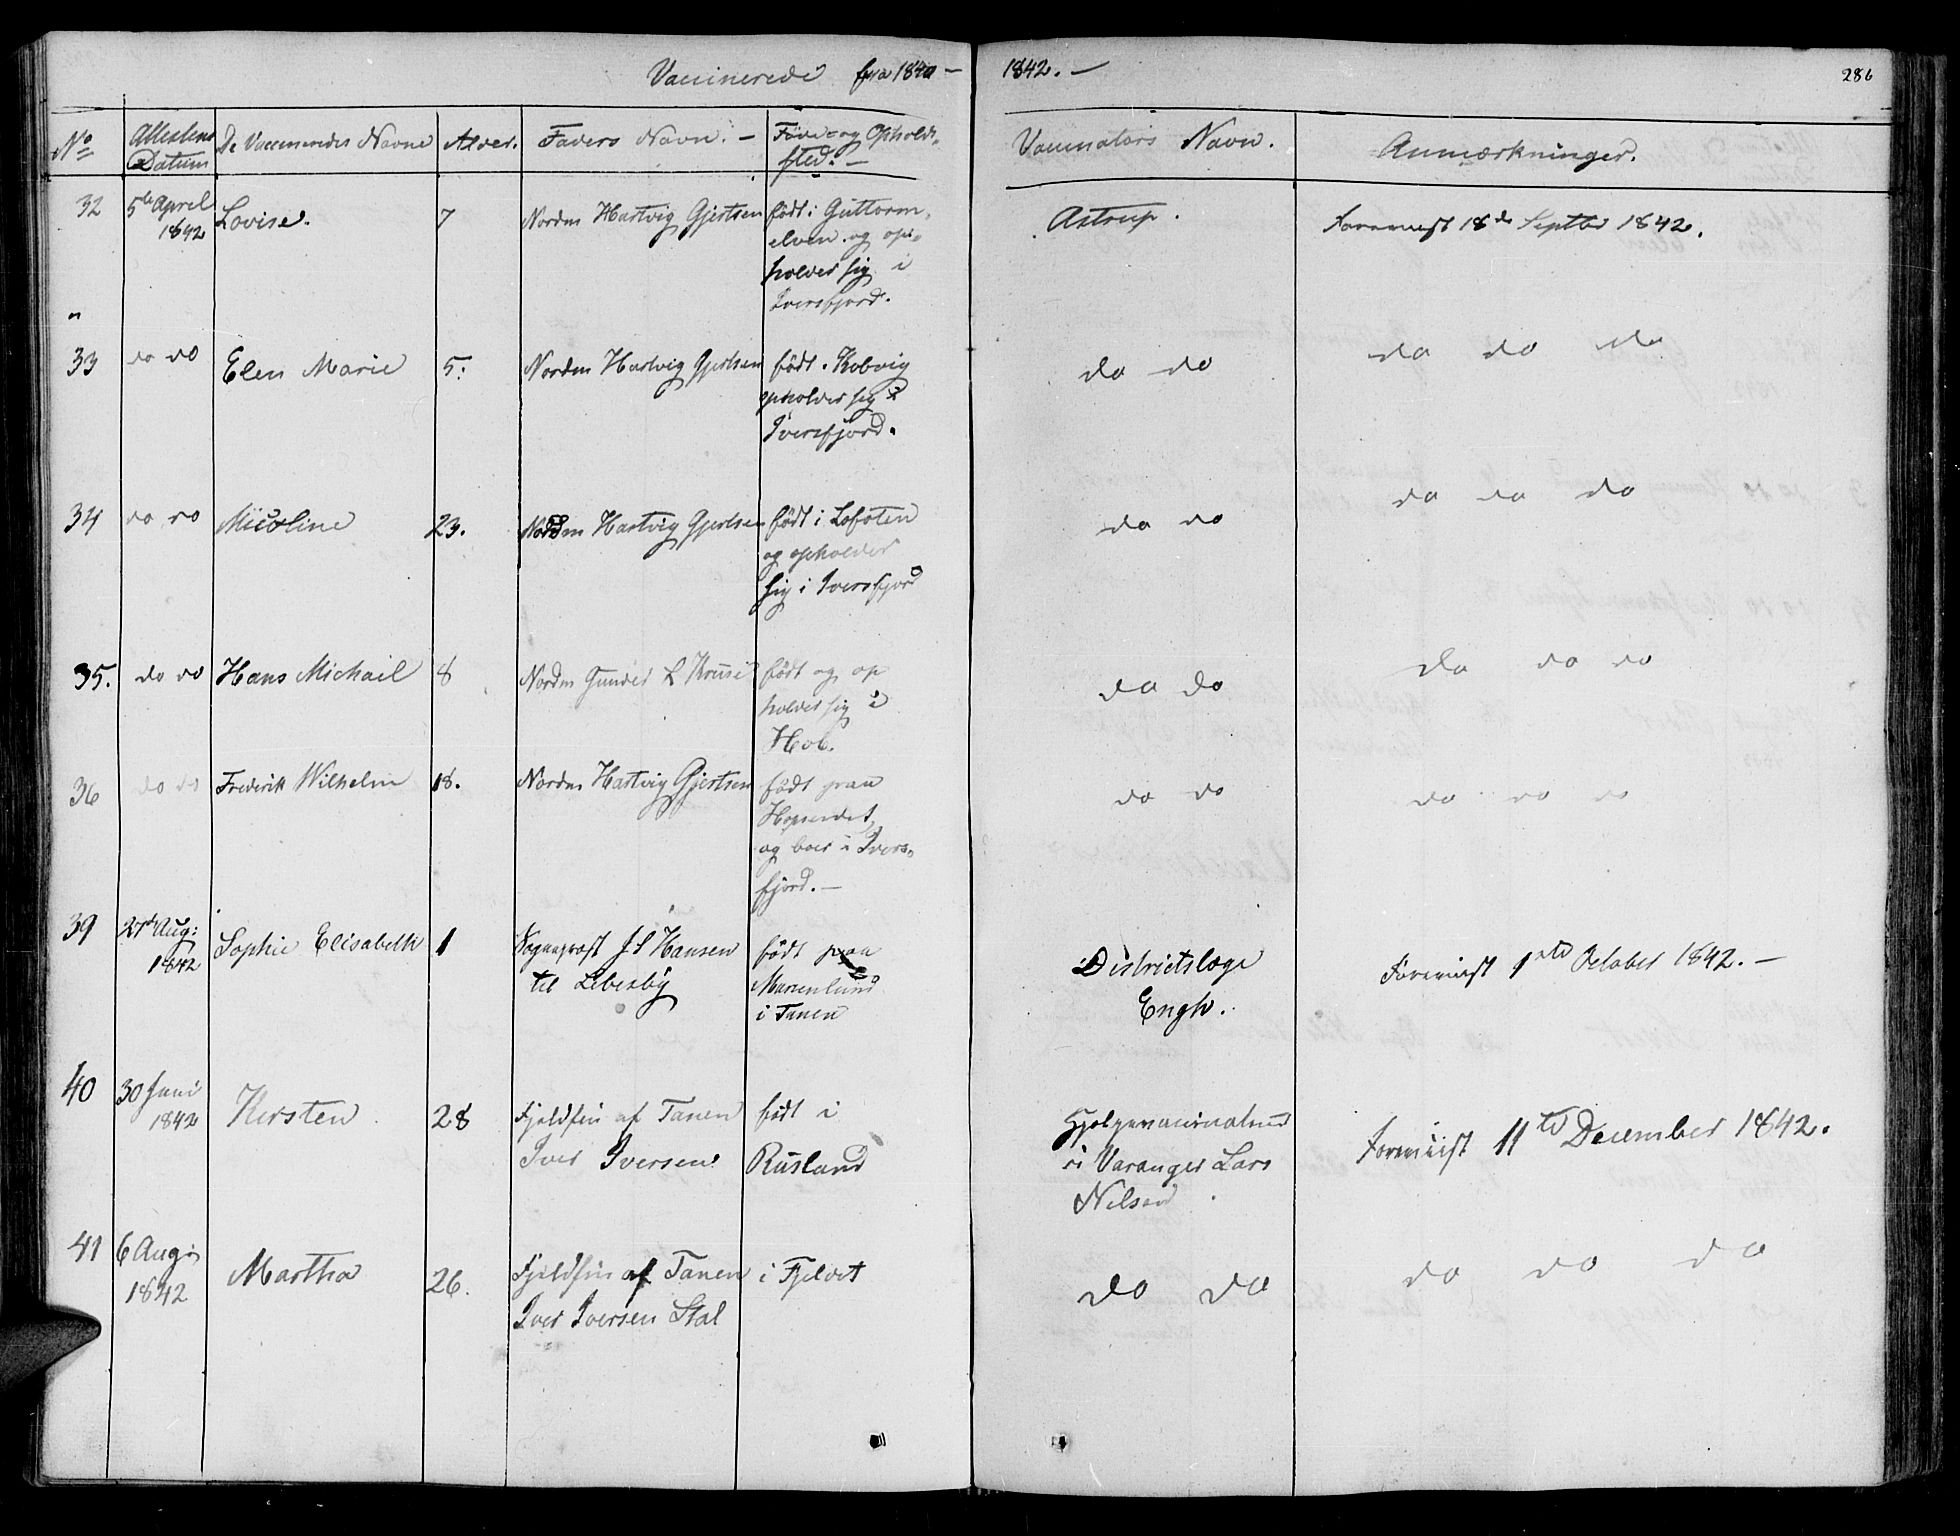 Vaccinerede fra 1840 — 1842. —
286
No
Attestens Datum
De Vaccineredes Navne
Alder.
Faders Navn. —
Føde- og Opholds-
sted. —
Vaccinators Navn.
Anmærkninger.
32
5te April
1842
Lovise.
7
Nordm Hartvig Gjertsen
født i Guttorm-
elven og op-
holder sig i
Iversfjord.
Astrup.
Foreviist 18de Septbr 1842.
33
do do
Elen Marie
5.
Nordm Hartvig Gjertsen
født i Kobvig
opholder sig i
Iversfjord.
do do
do do do
34
do do
Nicoline
23.
Nordm Hartvig Gjertsen
født i Lofoten
og opholder
sig i Iversfjord
do do
do do do
35.
do do
Hans Michail
8
Nordm Gunder L Kruse
født og op
holder sig i
Hob.
do do
do do do
36
do do
Frederik Wilhelm
18.
Nordm Hartvig Gjertsen
født paa
Hopseidet
og boer i Ivers-
fjord. —
do do
do do do
39
27de Aug:
1842
Sophie Elisabeth
1
Sognepræst J S Hansen
til Lebesby
født paa
Marienlund
i Tanen
Districtslæge
Engh.
Foreviist 9de October 1842. —
40
30 Juni
1842
Kirsten
28
Fjeldfin af Tanen
Iver Iversen
født i
Rusland
Hjelpevaccinateur
i Varanger Lars
Nilsen
Foreviist 11te December 1842.
41
6 Aug:
1842
Martha
26.
Fjeldfin af Tanen
Iver Iversen Stal
i Fjeldet
do do
do do do